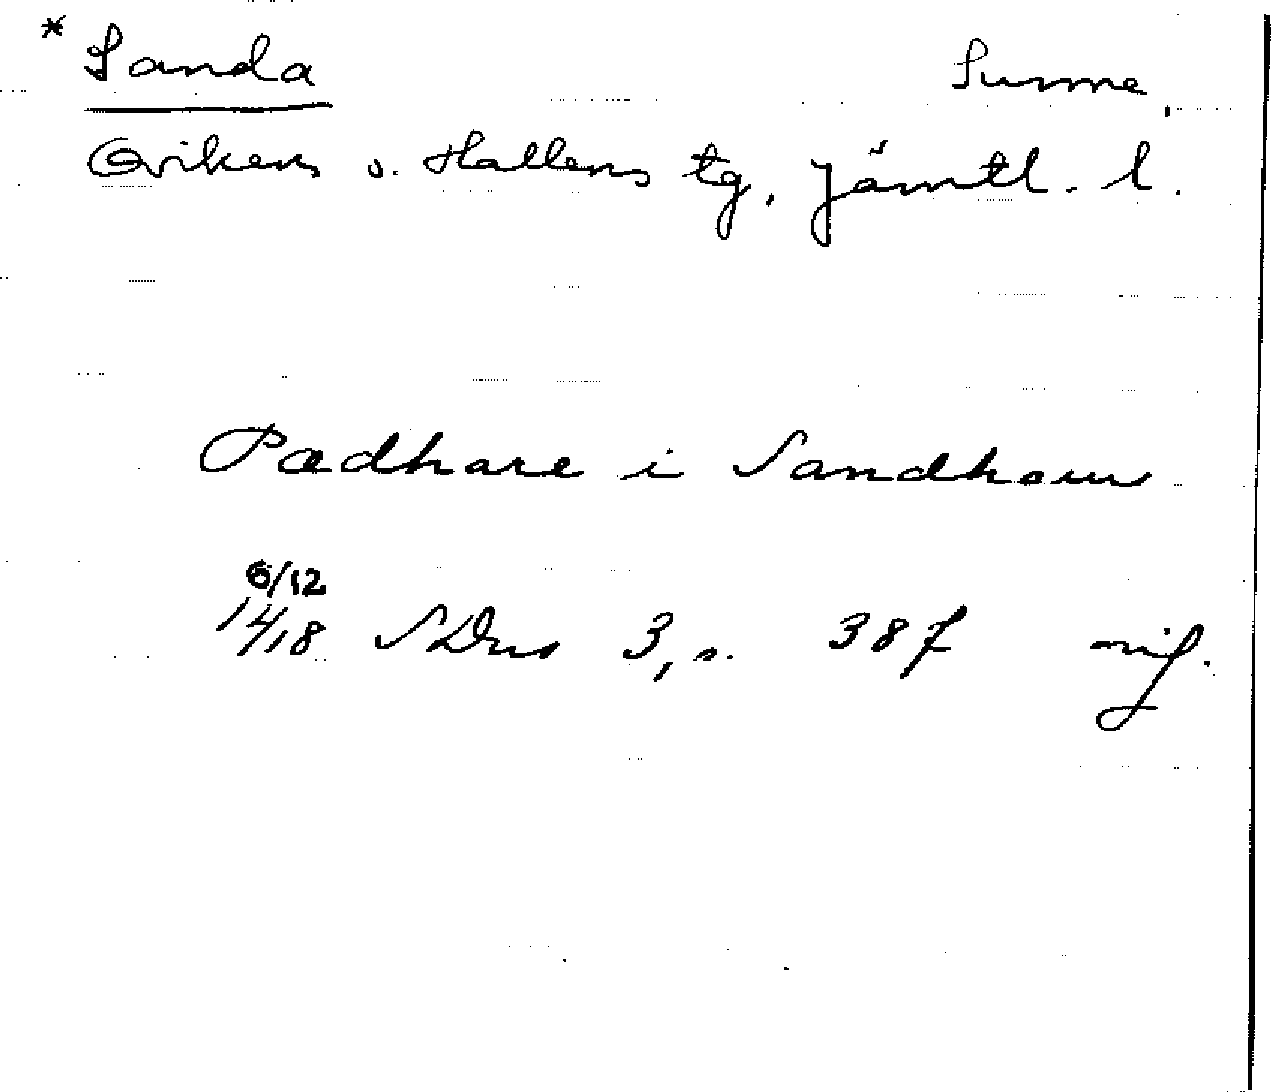 * Sanda Sunne,
Ovikens o. Hallens tg, Jämtl. l.
Pædhare i Sandhom
6/12
1418 SDns 3, s. 387